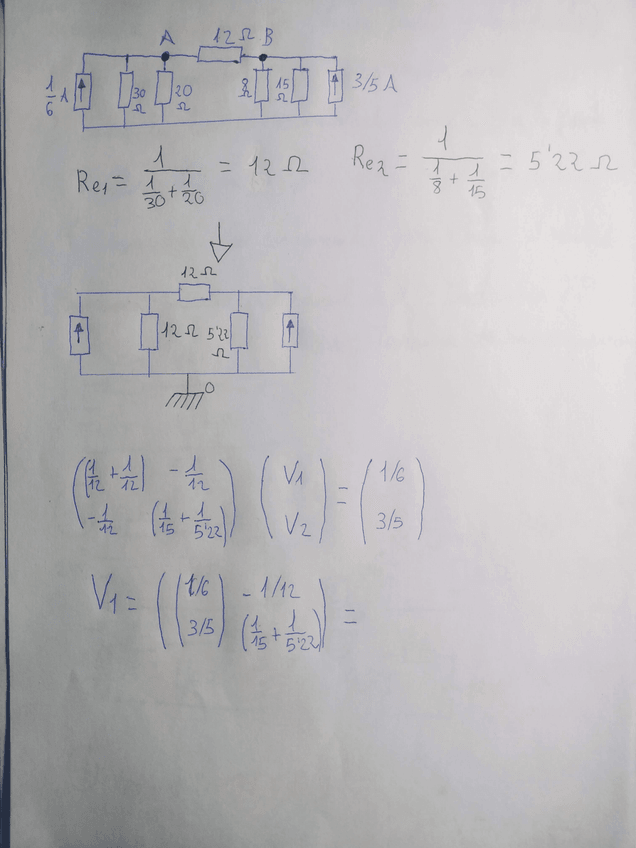 A 12Ω B
1/6 A 30Ω 20Ω 8Ω 15Ω 3/5 A
Re1 = 1/(1/30 + 1/20) = 12Ω Re2 = 1/(1/8 + 1/15) = 5'22 Ω
12Ω
12Ω 5'22 Ω
0
((1/12 + 1/12) -1/12 ; -1/12 (1/15 + 1/5'22)) (V1 ; V2) = (1/6 ; 3/5)
V1 = ((1/6 ; 3/5) -1/12 ; (1/15 + 1/5'22)) =